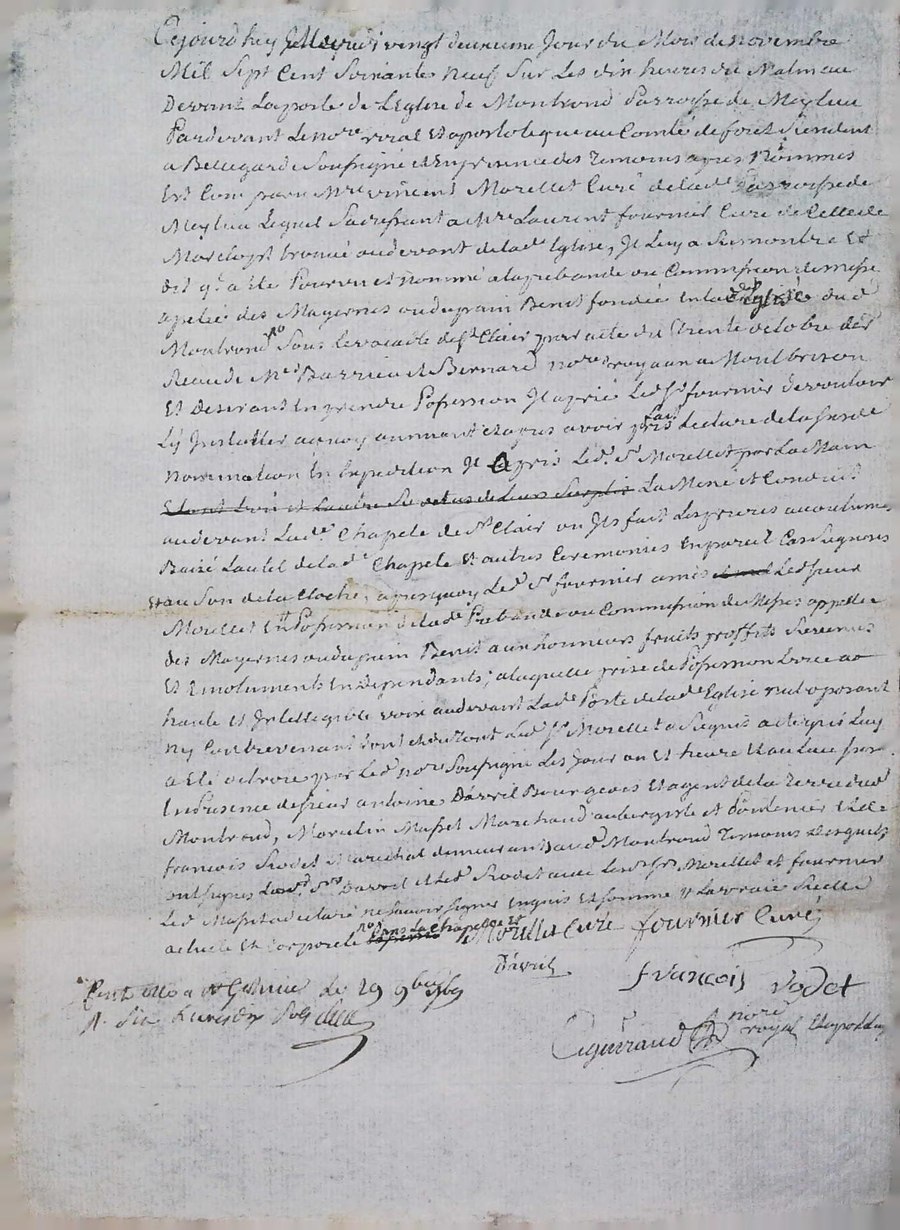 Cejourdhuy Mecredi vingt deuxieme Jour du Mois de novembre
Mil Sept Cent Soixante neuf Sur Les dix heures du Matin au
Devant La porte de L'Eglise de Montrond Parroisse de Meylieu
Pardevant Le nore royal Et apostolique au Comté de foret Residant
a Bellegarde Soussigné et En presence des Temoins apres Nommes
Est Comparu Mre vincent Morellet Curé de lade Parroisse de
Meylieu Lequel Sadressant a Mre Laurent fournier Curé de Celle de
Marclopt trouvé audevant de lade Eglise, Il Luy a Remontré Et
dit qu'il a Eté Pourvu et nommé a la prebande ou Commission de messe
apelée des Mayernes ou du pain Benit fondée En lade Eglise dud
Montrond Sous le vocable de St Clair par acte du Trente octobre der
Reçu de Mes Barrieu et Bernard nores royaux a Montbrison
Et Desirant En prendre Possession Il a prié Led Sr fournier de vouloir
Ly Installer au moyen et apres avoir fait Lecture de la susde
nomination En Expedition Il a pris Led. Sr Morellet par La Main
La Mené et Conduit
audevant Lade Chapele de St Clair ou Ils fait Les prieres accoutumé
Baizé Lautel de lade Chapele Et autres Ceremonies En pareil Cas Requises
Et au Son de la Cloche, apres quoy Led Sr fournier a mis Led sieur
Morellet En Possession de lade Prebande ou Commission de Messes appellée
des Mayernes ou du pain Benit aux honneurs fruits proffits Revenus
Et Emoluments En dependants; a laquelle prise de Possession Lue a
haute Et Intelligible voix audevant Lade Porte de lade Eglise nul oposant
ny Contrevenant dont et du tout Led Sr Morellet a Requis acte qui Luy
a Eté octroié par Led nore Soussigné Les Jour an Et heure Et au Lieu susd
En presence de sieur antoine Davril Bourgeois Et agent de la Terre dud
Montrond, Marcelin Masset Marchand aubergiste et Et
francois Rodet Marechal demeurants aud Montrond Temoins desquels
ont signés Led Sr Davril et Led Rodet avec Lesd Srs Morellet et fournier
Led Masset a declaré ne Savoir Signer Enquis Et Sommé La vraie Reelle
actuelle Et Corporele dans la Chapelle
Morellet Curé fournier Curé
Davril
francois rodet
Cont olle a St Galmier Le 29 9bre 1769
R.
Eyguiraud nore royal Et apostolique